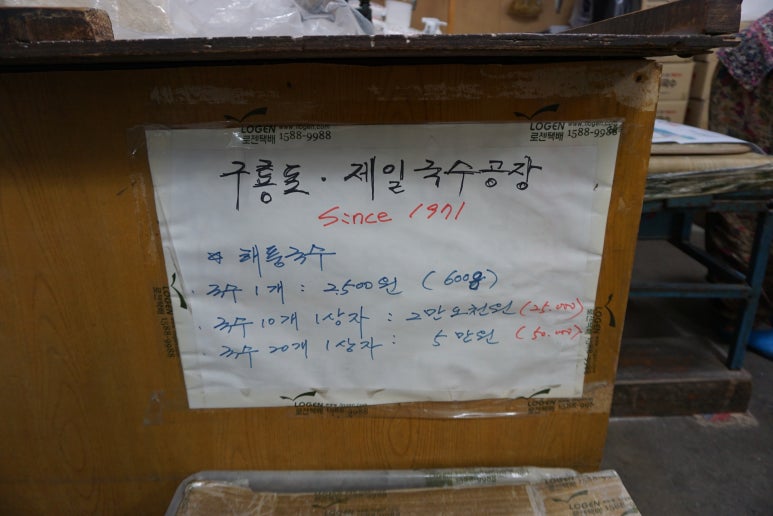 LOGEN www.ilogen.com
로젠택배 1588-9988
LOGEN
로젠택배 1588-9988
구룡포. 제일국수공장
Since 1971
해풍국수
국수 1개 : 2,500원 (600g)
국수 10개 1상자 : 2만오천원 (25.000)
국수 20개 1상자 : 5만원 (50.000)
로젠택배 1588-9988
로젠택배
LOGEN
로젠택배 1588-9988
LOGEN
로젠택배 1588-9988